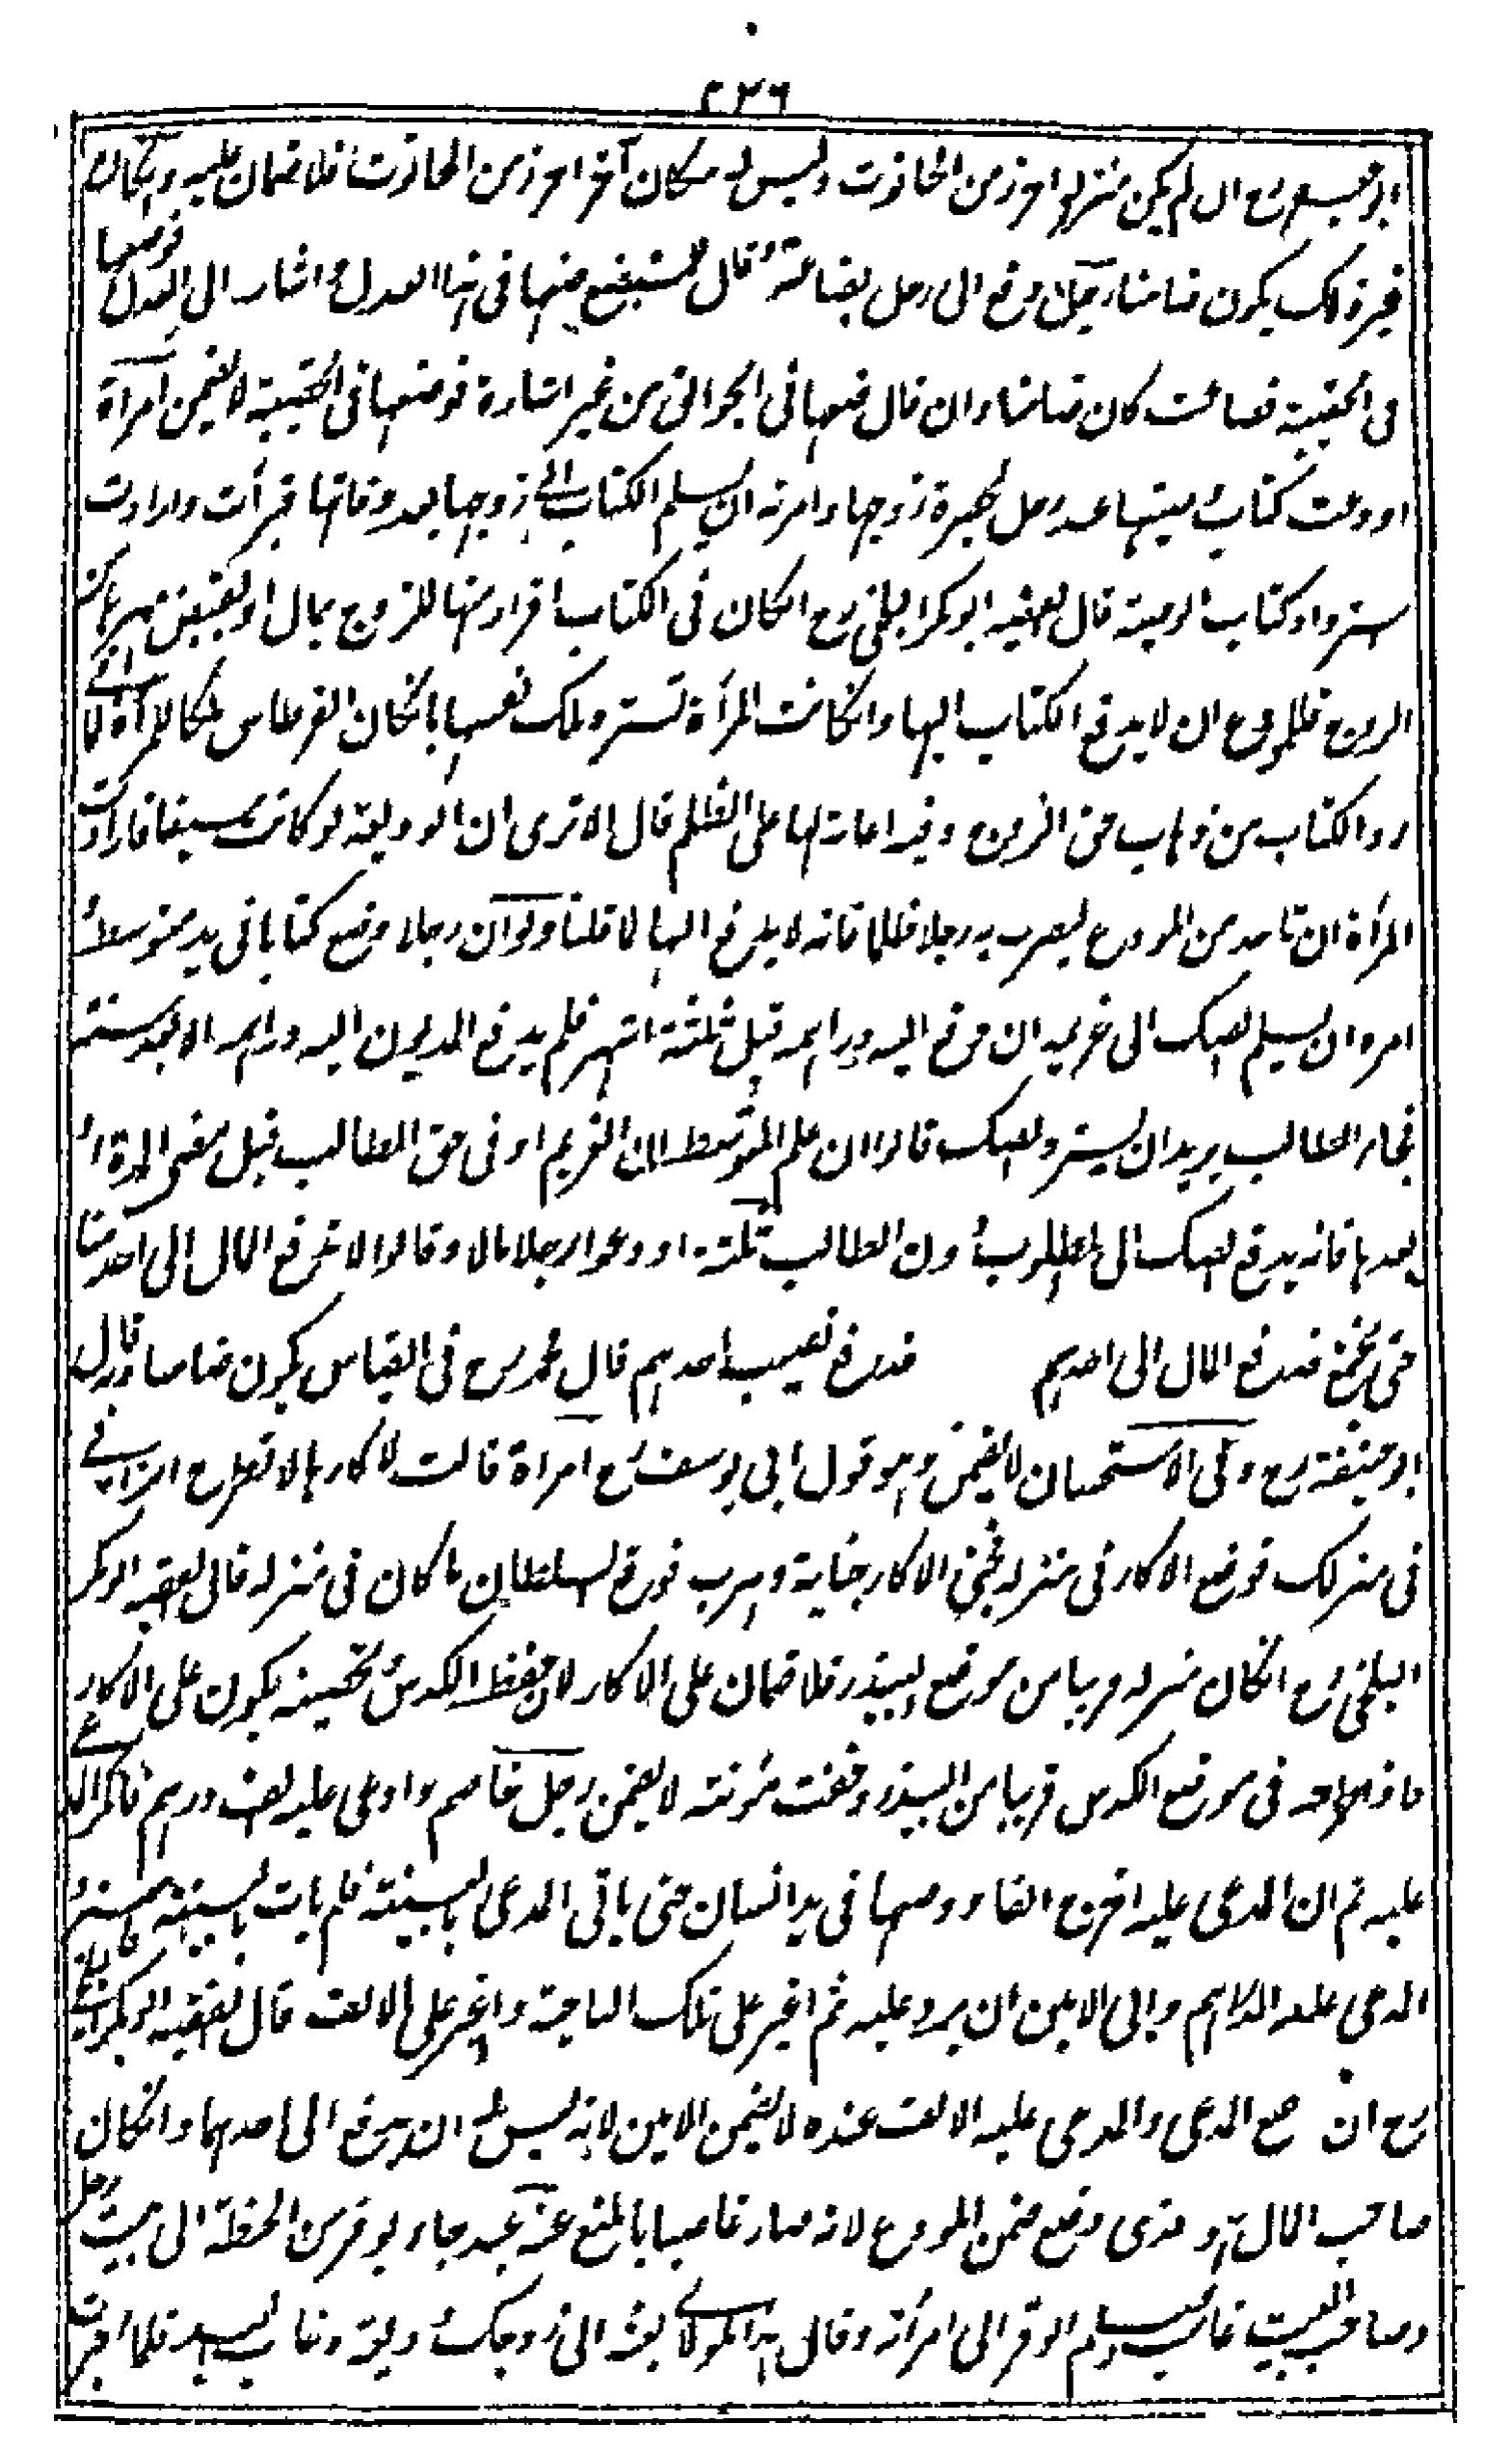 ٢٣٦
ابو جعفر رح ان لم يكن منزله احرز من الحانوت وليس له مكان آخر احرز من الحانوت فلا ضمان عليه وانكان
غير ذلك يكون ضامنا رجل دفع الى رجل بضاعة وقال للمستبضع ضعها فى هذا العدل واشار الى العدل فوضعها
فى الحقيبة فضاعت كان ضامنا وان قال ضعها فى الجوالق من غير اشارة فوضعها فى الحقيبة لا يضمن امرأة
اودعت كتاب وصيتها عند رجل بحضرة زوجها وامرته ان يسلم الكتاب الى زوجها بعد وفاتها فبرأت وارادت
استرداد كتاب الوصية قال الفقيه ابو بكر البلخى رح انكان فى الكتاب اقرار منها للزوج بمال او بقبض مهرها من
الزوج فللمودع ان لا يدفع الكتاب اليها وانكانت المرأة تسترد ملك نفسها بانكان القرطاس ملكا للمرأة لما فى
رد الكتاب من ذهاب حق الزوج وفيه اعانة لها على الظلم قال الا ترى ان الوديعة لو كانت سيفا فارادت
المرأة ان تأخذ من المودع ليضرب به رجلا ظلما فانه لا يدفع اليها لما قلنا ولو ان رجلا وضع كتابا فى يد متوسط
امره ان يسلم الصك الى غريمه ان دفع اليه دراهمه قبل ثلثة اشهر فلم يدفع المديون اليه دراهمه الا بعد سنة
فجاء الطالب يريد ان يسترد الصك قالوا ان علم المتوسط ان الغريم اوفى حق الطالب قبل مضى المدة او
بعدها فانه يدفع الصك الى المطلوب دون الطالب ثلثة اودعوا رجلا مالا وقالوا لا تدفع المال الى احد منا
حتى نجتمع فدفع المال الى احدهم فدفع نصيب احدهم قال محمد رح فى القياس يكون ضامنا وبه قال
ابو حنيفة رح وفى الاستحسان لا يضمن وهو قول ابى يوسف رح امرأة قالت لاكارها لا تطرح انزالى
فى منزلك فوضع الاكار فى منزله فجنى الاكار جناية وهرب فرفع السلطان ما كان فى منزله قال الفقيه ابو بكر
البلخى رح انكان منزله قريبا من موضع البيدر فلا ضمان على الاكار لان حفظ الكدس وتحصينه يكون على الاكار
فى موضع الكدس قريبا من البيدر وخفت مؤنته لا يضمن رجل خاصم وادعى عليه الف درهم فانكر المدعى
عليه ثم ان المدعى عليه اخرج الفا ووضعها فى يد انسان حتى ياتى المدعى بالبينة فلم يات بالبينة فاسترد
المدعى عليه الدراهم وابى الامين ان يرد عليه ثم اغير على تلك الناحية واغير على الالف قال الفقيه ابو بكر البلخى
رح ان وضع المدعى والمدعى عليه الالف عنده لا يضمن الامين لانه ليس له ان يدفع الى احدهما وانكان
صاحب المال هو الذى وضع ضمن المودع لانه صار غاصبا بالمنع عنه عبد جاء بوقر من الحنطة الى بيت رجل
وصاحب البيت غائب فسلم الوقر الى امرأته وقال هذا لمولاى بعثه الى زوجك وديعة وغاب العبد فلما اخبرت